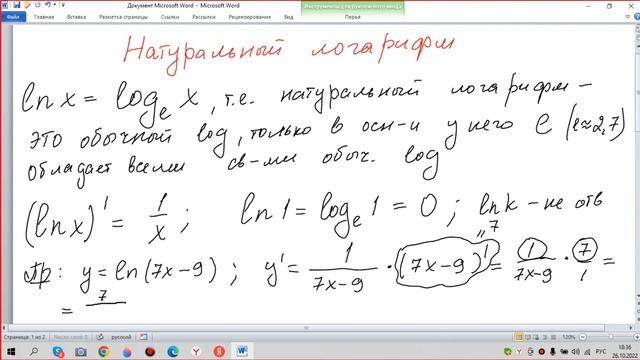 Документ Microsoft Word - Microsoft Word
Файл Главная Вставка Разметка страницы Ссылки Рассылки Рецензирование Вид Надстройки Перья
Натуральный логарифм
ln x = log_e x, т.е. натуральный логарифм –
это обычный log, только в осн-и у него e (e≈2,7)
обладает всеми св-ми обыч. log
(ln x)' = 1/x ; ln 1 = log_e 1 = 0 ; ln k – не отв
Пр: y = ln(7x–9) ; y' = 1/(7x–9) · (7x–9)' = 1/(7x–9) · 7/1 =
"7
= 7
Страница: 1 из 2 Число слов: 0 русский 120%
РУС
18:36
26.10.2022